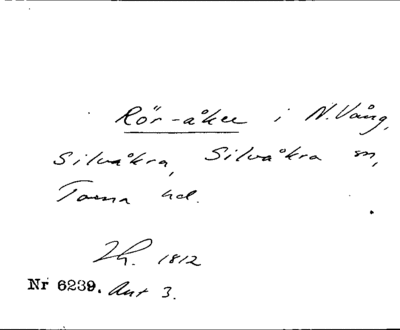 Rör-åker i N. Vång,
Silvåkra, Silvåkra sn,
Torna hd.
Lh. 1812
Nr 6239. Ant 3.